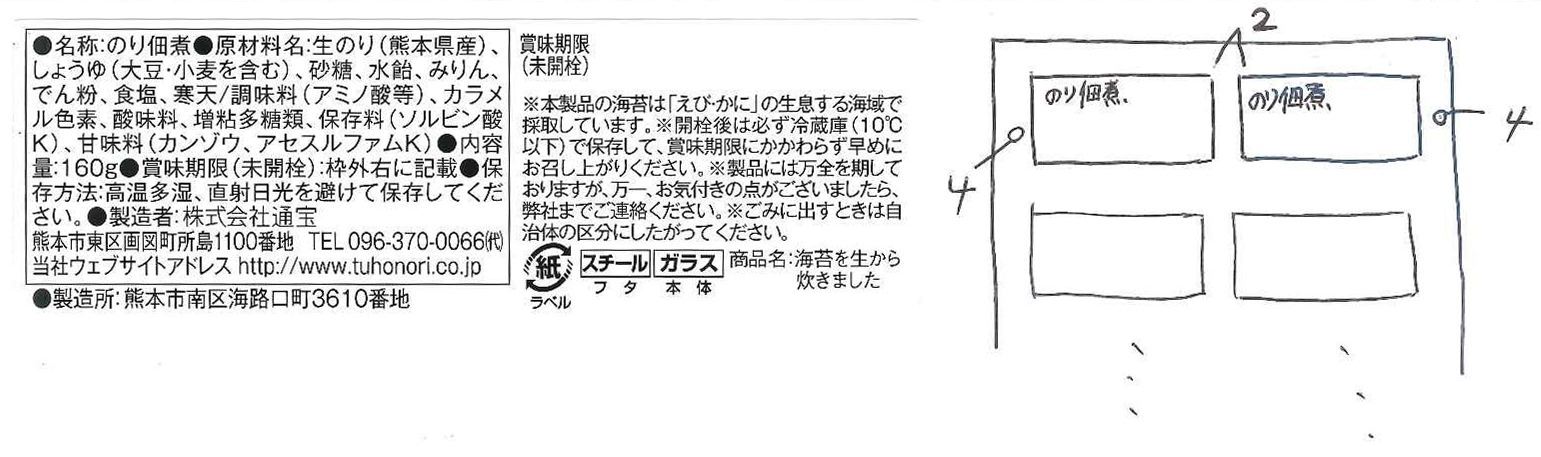 ●名称:のり佃煮●原材料名:生のり(熊本県産)、
しょうゆ(大豆・小麦を含む)、砂糖、水飴、みりん、
でん粉、食塩、寒天/調味料(アミノ酸等)、カラメ
ル色素、酸味料、増粘多糖類、保存料(ソルビン酸
K)、甘味料(カンゾウ、アセスルファムK)●内容
量:160g●賞味期限(未開栓):枠外右に記載●保
存方法:高温多湿、直射日光を避けて保存してくだ
さい。●製造者:株式会社通宝
熊本市東区画図町所島1100番地 TEL 096-370-0066㈹
当社ウェブサイトアドレス http://www.tuhonori.co.jp
●製造所:熊本市南区海路口町3610番地
賞味期限
(未開栓)
※本製品の海苔は「えび・かに」の生息する海域で
採取しています。※開栓後は必ず冷蔵庫(10℃
以下)で保存して、賞味期限にかかわらず早めに
お召し上がりください。※製品には万全を期して
おりますが、万一、お気付きの点がございましたら、
弊社までご連絡ください。※ごみに出すときは自
治体の区分にしたがってください。
紙
ラベル
スチール
フタ
ガラス
本体
商品名:海苔を生から
炊きました
2
のり佃煮、
のり佃煮、
4
4